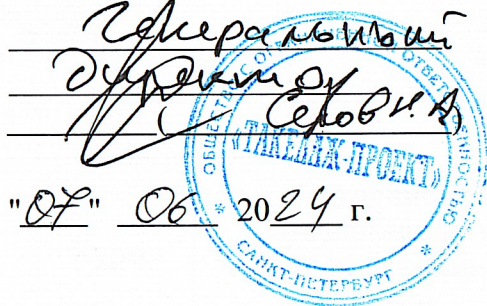 Генеральный
директор
Серов Н.А
"07" 06 2024 г.
ОБЩЕСТВО С ОГРАНИЧЕННОЙ ОТВЕТСТВЕННОСТЬЮ
«ТАКЕЛАЖ-ПРОЕКТ»
* САНКТ-ПЕТЕРБУРГ *